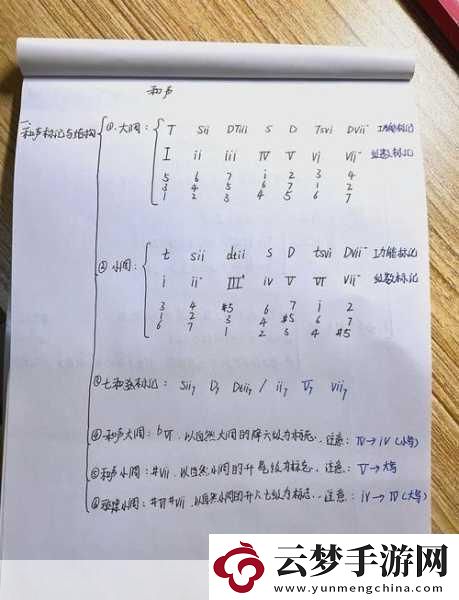 和声
一、和声标记与结构
① 大调： T Sii DTiii S D Tsvi Dvii⁻ 功能标记
I ii iii IV V vi vii⁻ 级数标记
5 6 7 i 2 3 4
3 4 5 6 7 1 2
1 2 3 4 5 6 7
② 小调： t sii dtiii S D tsvi Dvii⁻ 功能标记
i ii⁻ III⁺ iv V VI vii⁻ 级数标记
3 4 #5 6 7 i 2
1 2 3 4 #5 6 7
6 7 1 2 3 4 #5
③ 七和弦标记： Sii₇ D₇ Dtiii₇ / ii₇ V₇ vii₇
④ 和声大调：bVI. 以自然大调的降六级为标志. 注意： IV→iv (小写)
⑤ 和声小调：#vii. 以自然小调的升七级为标志. 注意： V→大写
⑥ 旋律小调：#VI#vii. 以自然小调的升六七级为标志. 注意： iv→IV (大写)
云梦手游网
www.yunmengchina.com